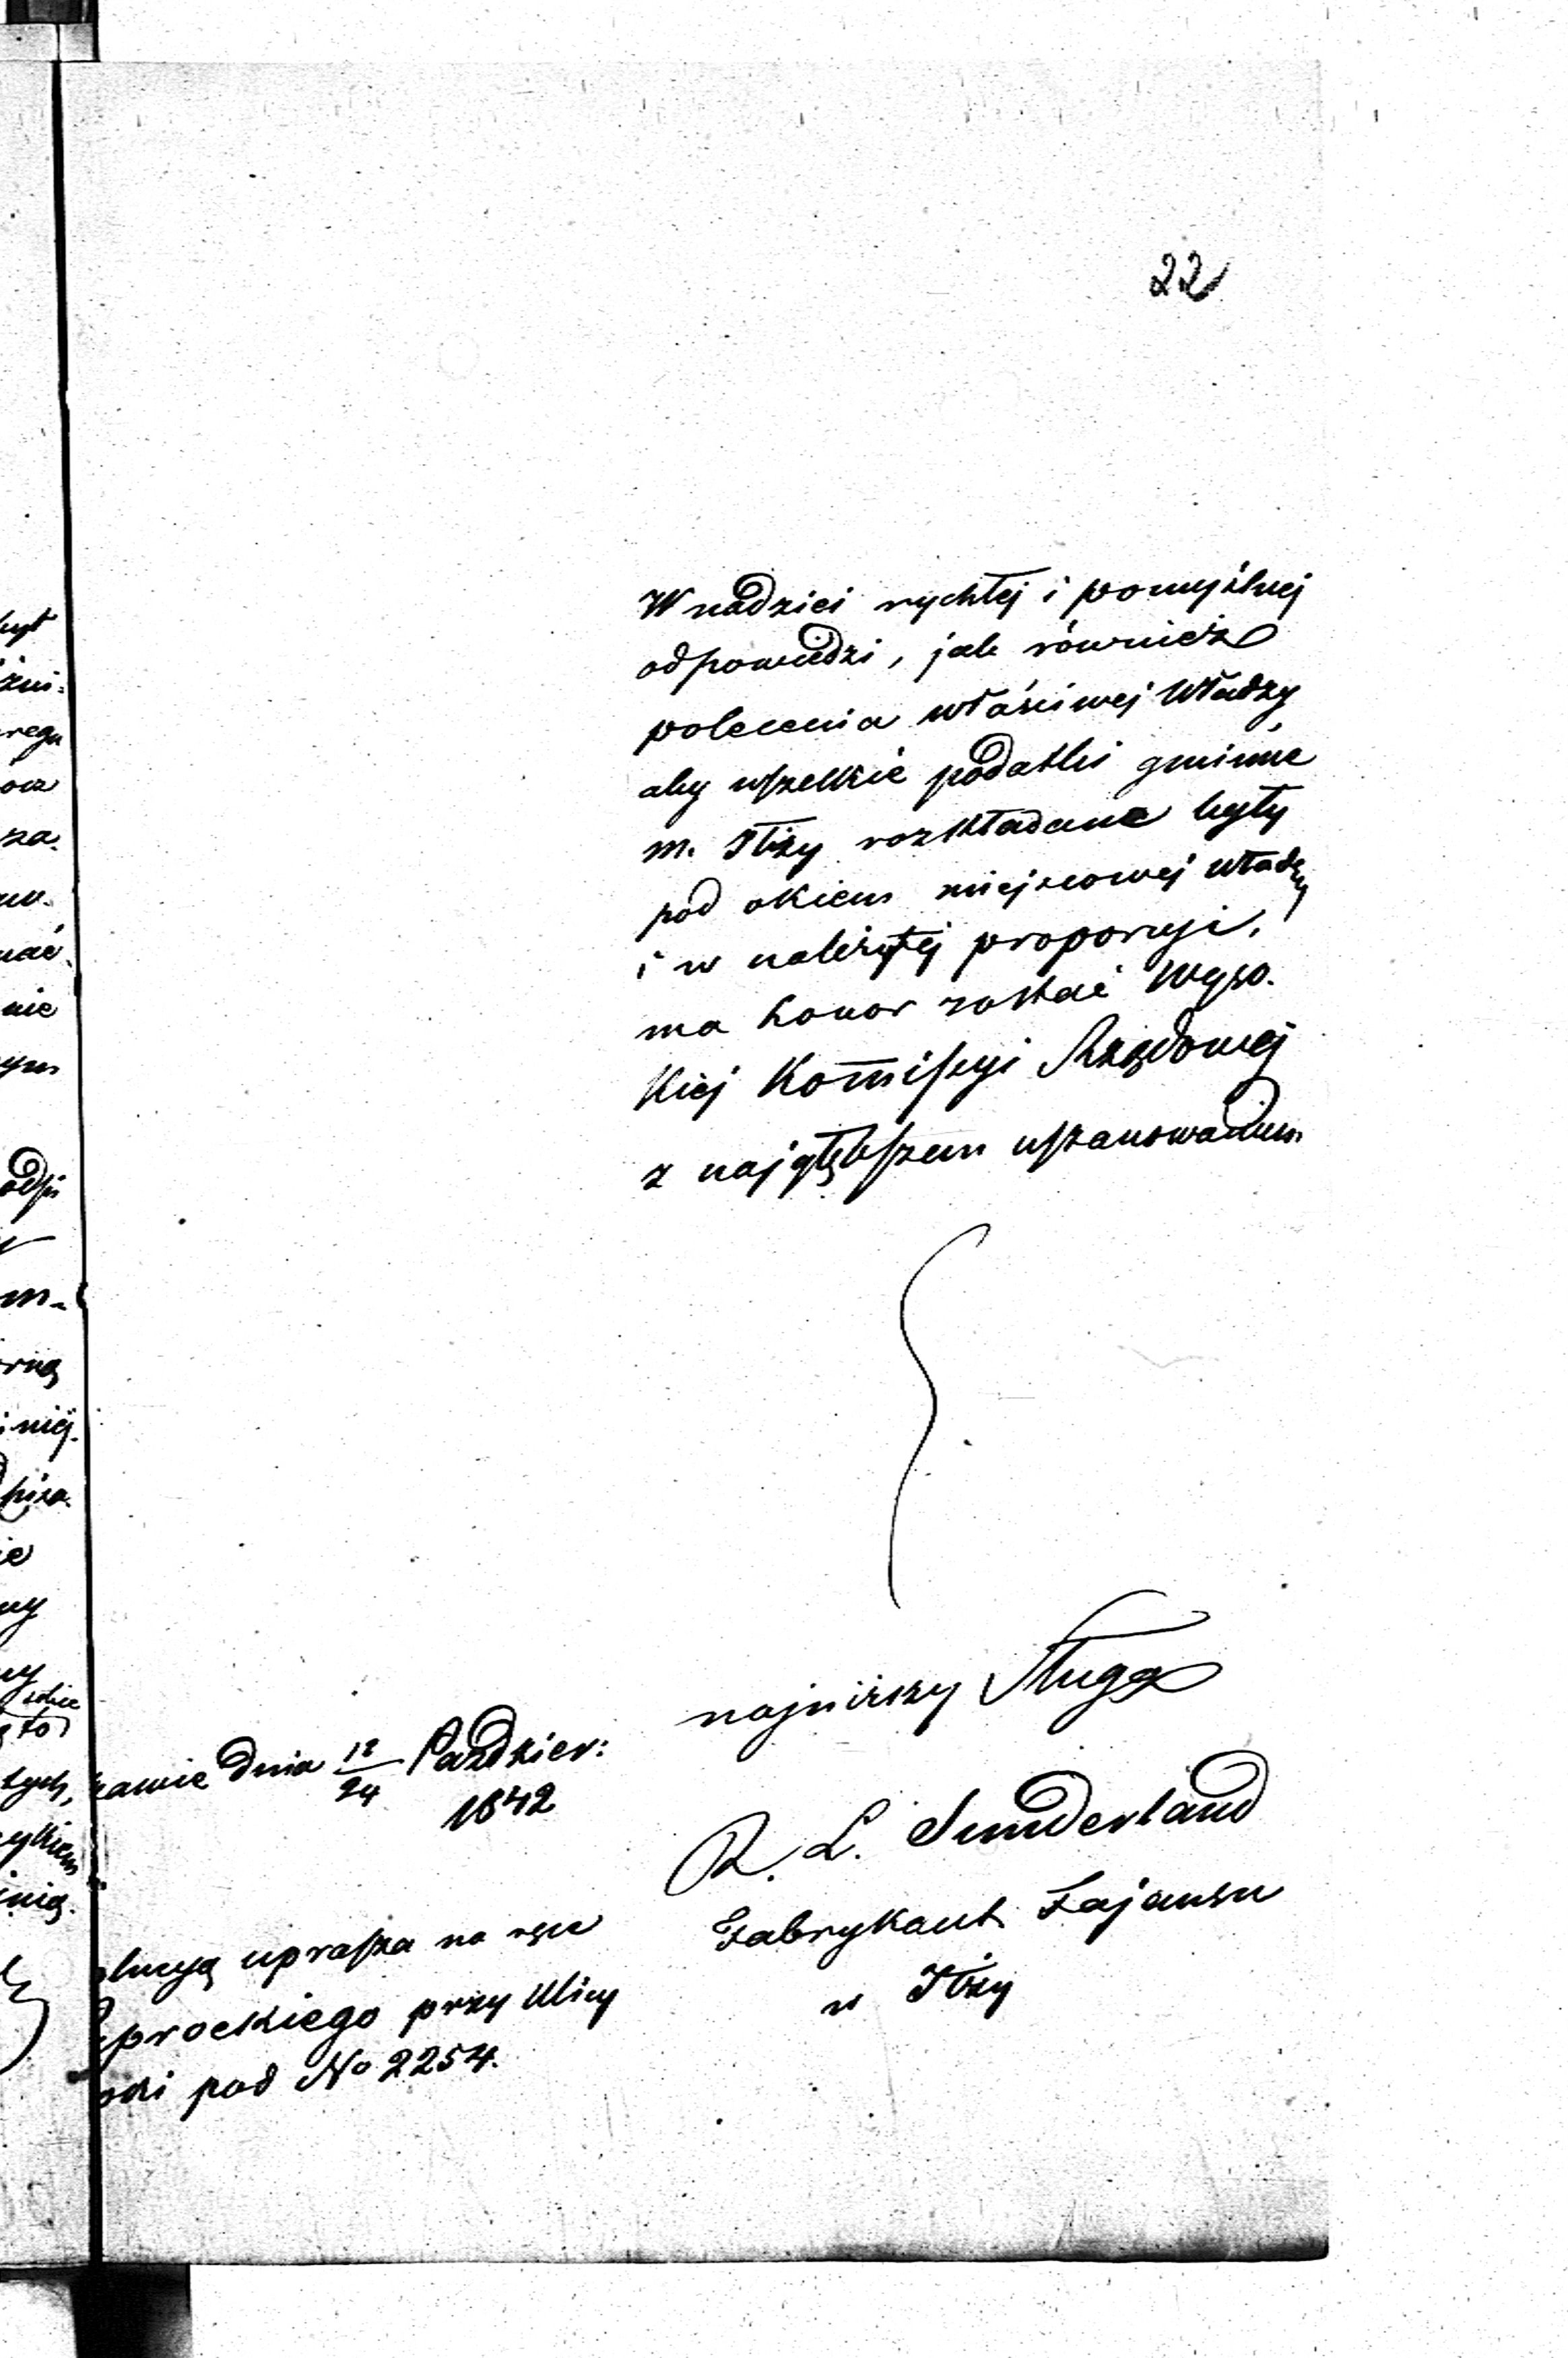 22
W nadziei rychłej i pomyślnej
odpowiedzi, jak również
polecenia właściwej Władzy,
aby wszelkie podatki gminne
m. Iłży rozkładane były
pod okiem miejscowej władzy
i w należytej proporcyi,
ma honor zostać Wyso-
kiej Kommissyi Rządowej
z najgłębszem uszanowaniem
najniższy Sługa
R. L. Sunderland
Fabrykant Fajansu
w Iłży
zawie dnia 12/24 Paździer:
1842
olucyą uprasza na ręce
prockiego przy Ulicy
oki pod No 2254.